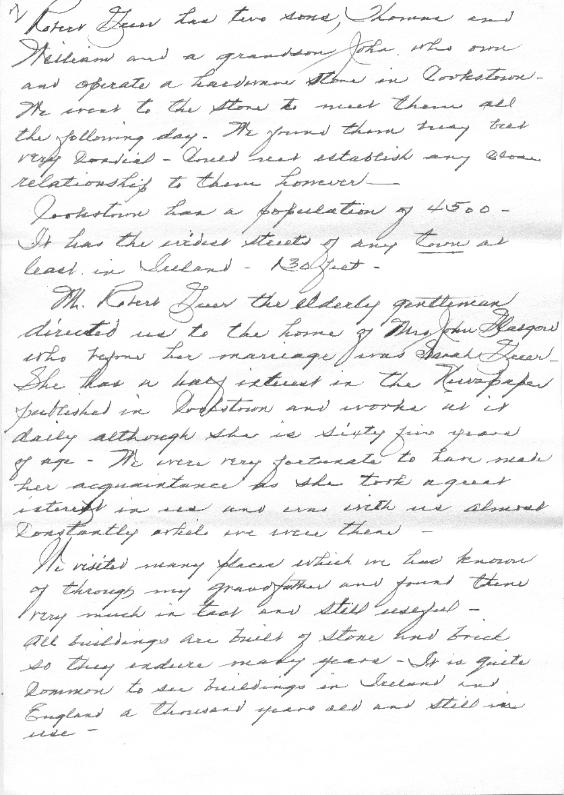 Robert Greer has two sons, Thomas and
William and a grandson John, who own
and operate a hardware store in Cookstown -
We went to the store to meet them all
the following day - We found them busy but
very Cordial - Could not establish any close
relationship to them however -
Cookstown has a population of 4500 -
It has the widest streets of any town at
least in Ireland - 130 feet -
Mr. Robert Greer the elderly gentleman
directed us to the home of Mrs John Glasgow
who before her marriage was Sarah Greer -
She has a half interest in the Newspaper
published in Cookstown and works at it
daily although she is sixty five years
of age - We were very fortunate to have made
her acquaintance as she took a great
interest in us and was with us almost
Constantly while we were there -
We visited many places which we had known
of through my grandfather and found them
very much in tact and still useful -
All buildings are built of stone and brick
so they endure many years - It is quite
Common to see buildings in Ireland and
England a thousand years old and still in
use -